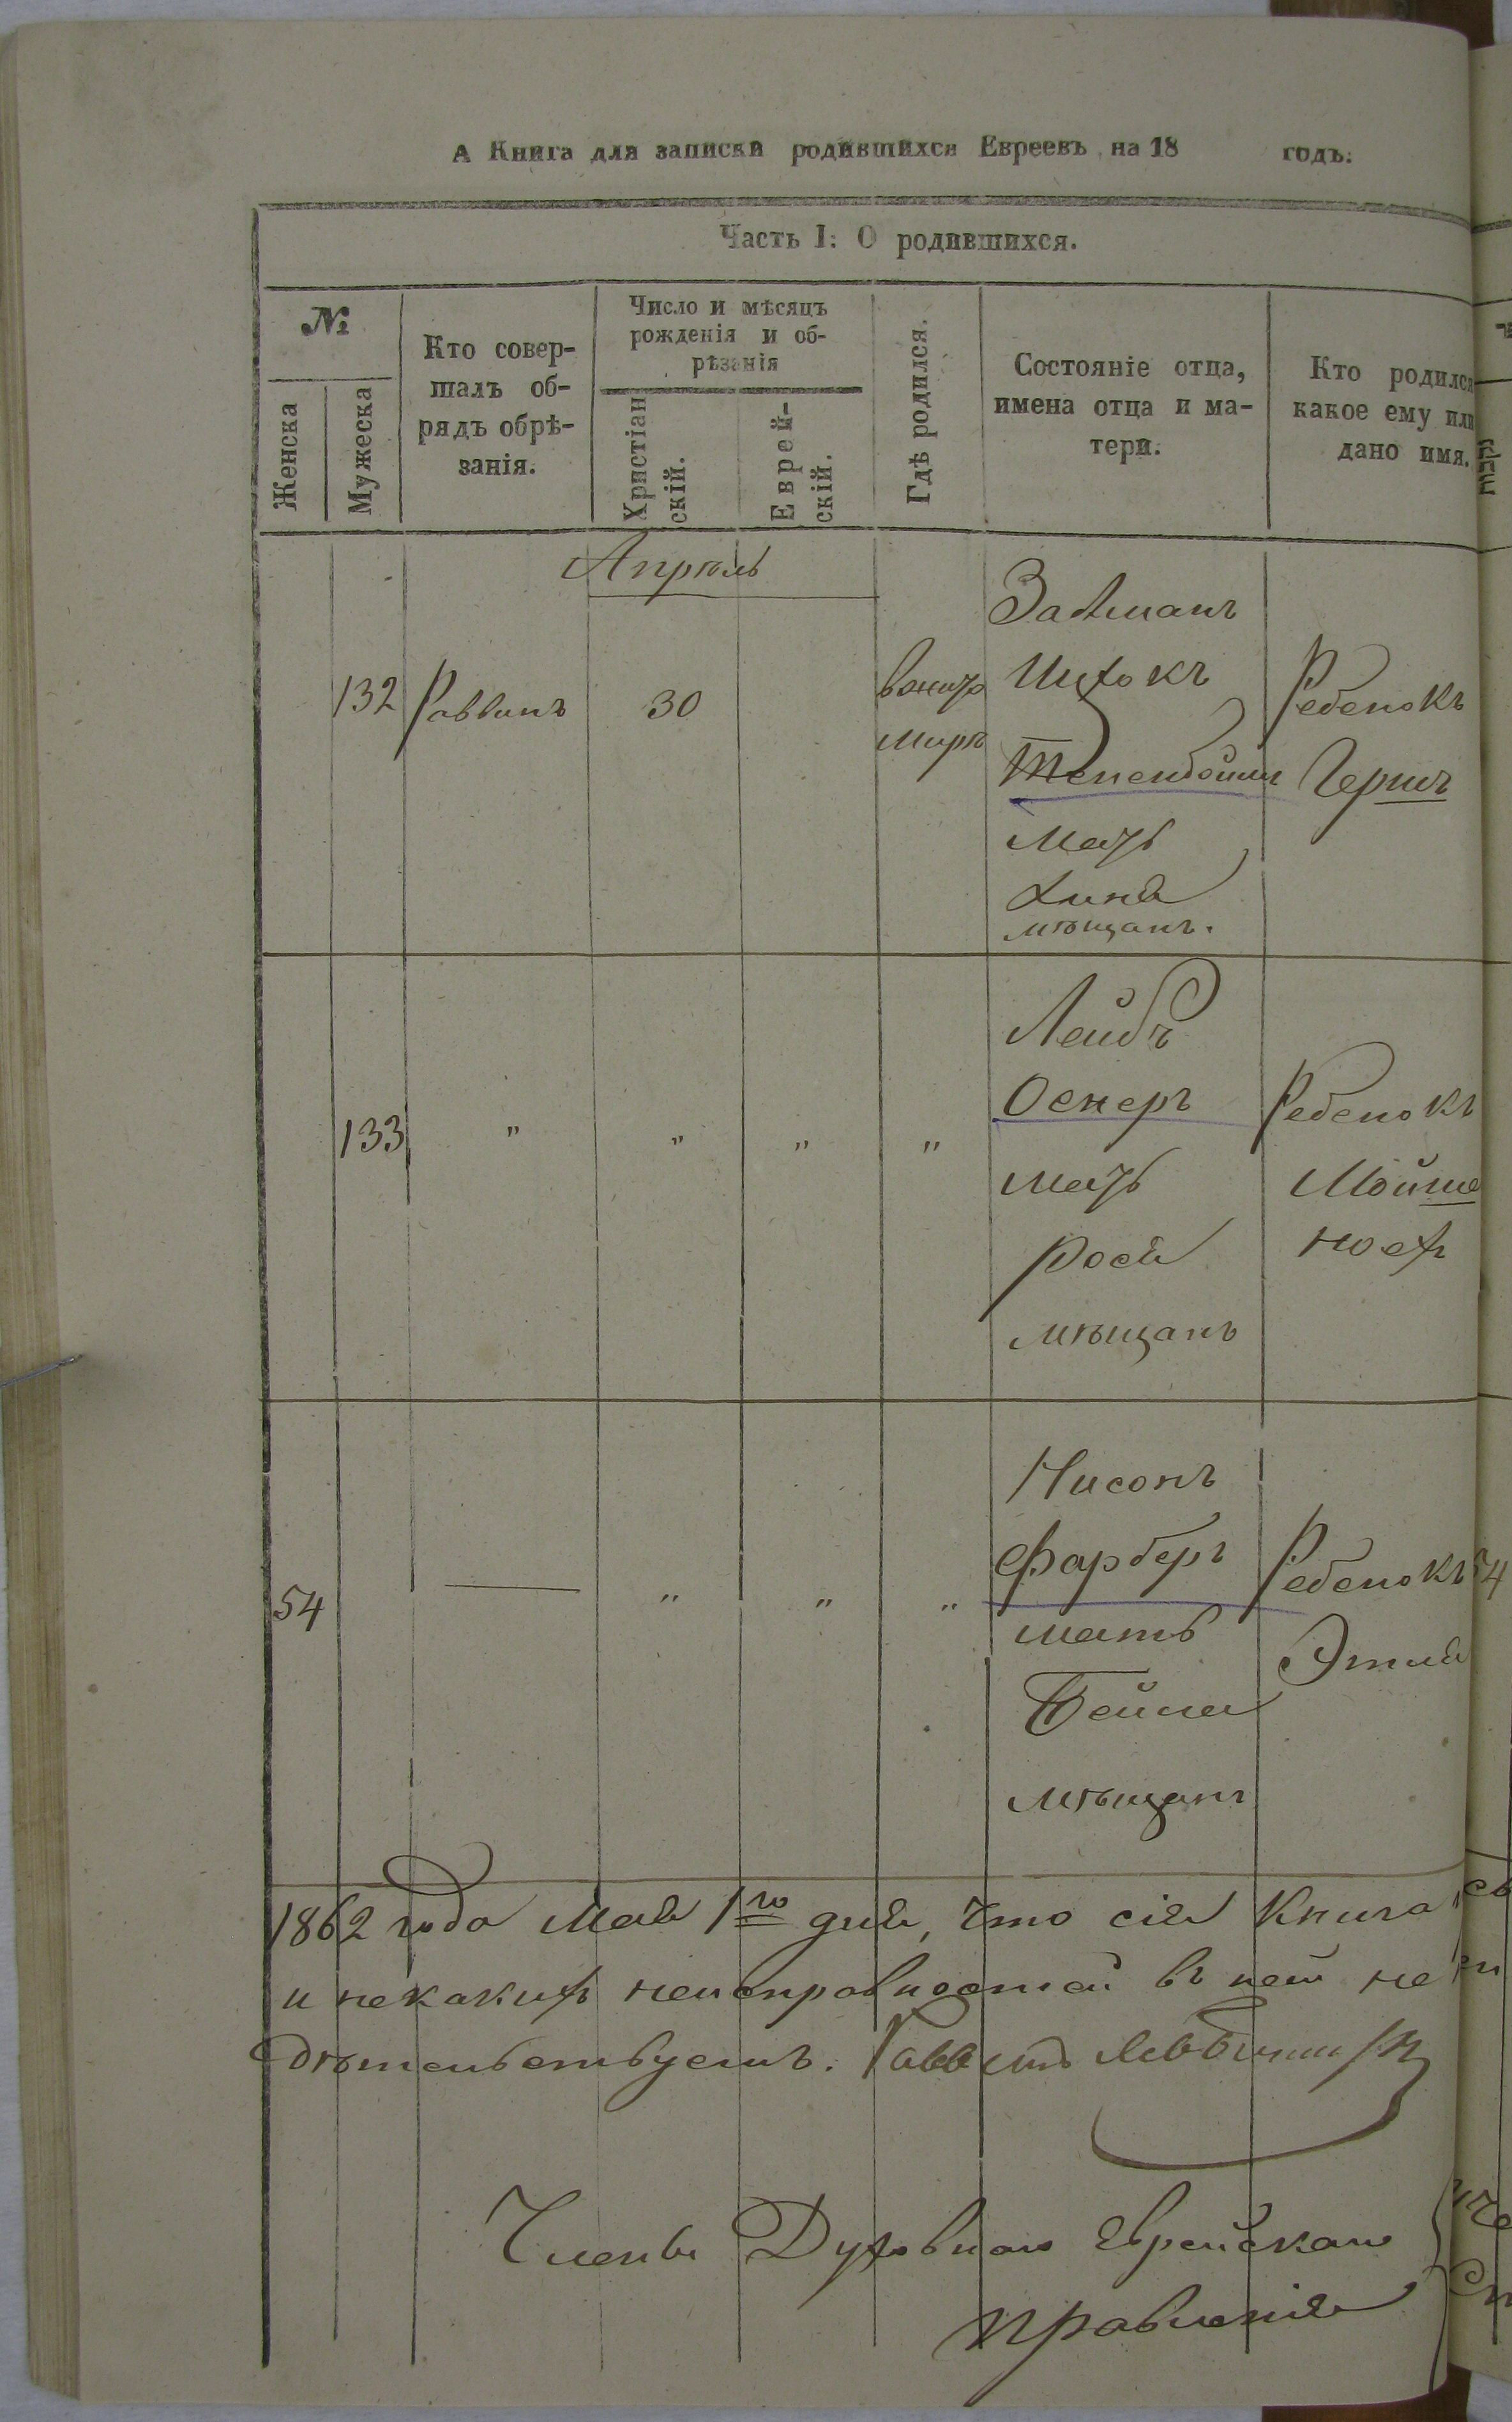 А Книга для записки родившихся Евреевъ на 18 годъ.
Часть I: О родившихся.
№
Женска
Мужеска
Кто совер-
шалъ об-
рядъ обрѣ-
занія.
Число и мѣсяцъ
рожденія и об-
рѣзанія
Христіан
скій.
Еврей-
скій.
Гдѣ родился.
Состояніе отца,
имена отца и ма-
тери.
Кто родился
какое ему или
дано имя.
Апрѣль
132
Раввинъ
30
мирѣ
Залманъ
Ицхокъ
Тененбоймъ
мать
Хина
мѣщанъ.
Ребенокъ
Гершъ
133
"
"
"
"
Лейбъ
Оснеръ
мать
Рося
мѣщанъ
Ребенокъ
Мойше
54
"
"
"
Нисонъ
Фарберъ
мать
Бейла
мѣщанъ
Ребенокъ
Этля
1862 года Мая 1го дня, что сія Книга
и некакихъ неисправностей въ ней не
дѣтельствуемъ. Раввинъ
Члены Духовнаго Еврейскаго
правленія